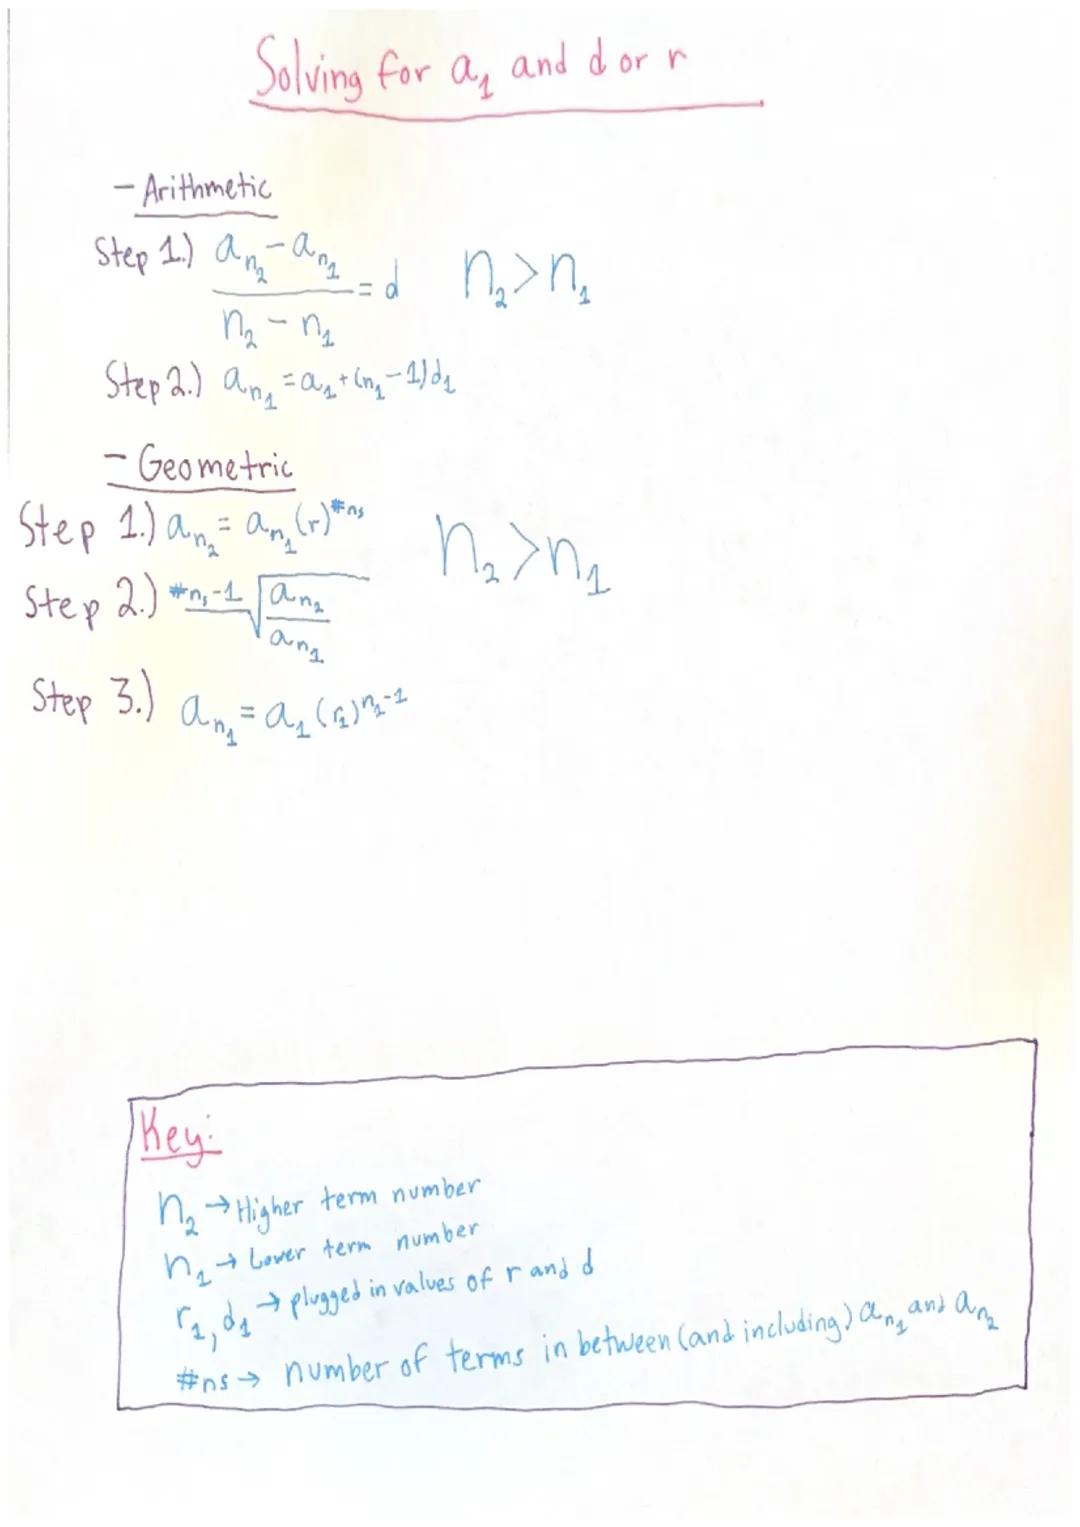 Solving for a₁ and d or r
- Arithmetic
Step 1.) (a_{n₂} - a_{n₁}) / (n₂ - n₁) = d    n₂ > n₁
Step 2.) a_{n₁} = a₁ + (n₁ - 1)d₁
- Geometric
Step 1.) a_{n₂} = a_{n₁}(r)^{#ns}    n₂ > n₁
Step 2.) ^{#ns-1}√(a_{n₂} / a_{n₁})
Step 3.) a_{n₁} = a₁(r₁)^{n₁-1}
Key:
n₂ → Higher term number
n₁ → Lower term number
r₁, d₁ → plugged in values of r and d
#ns → number of terms in between (and including) a_{n₁} and a_{n₂}